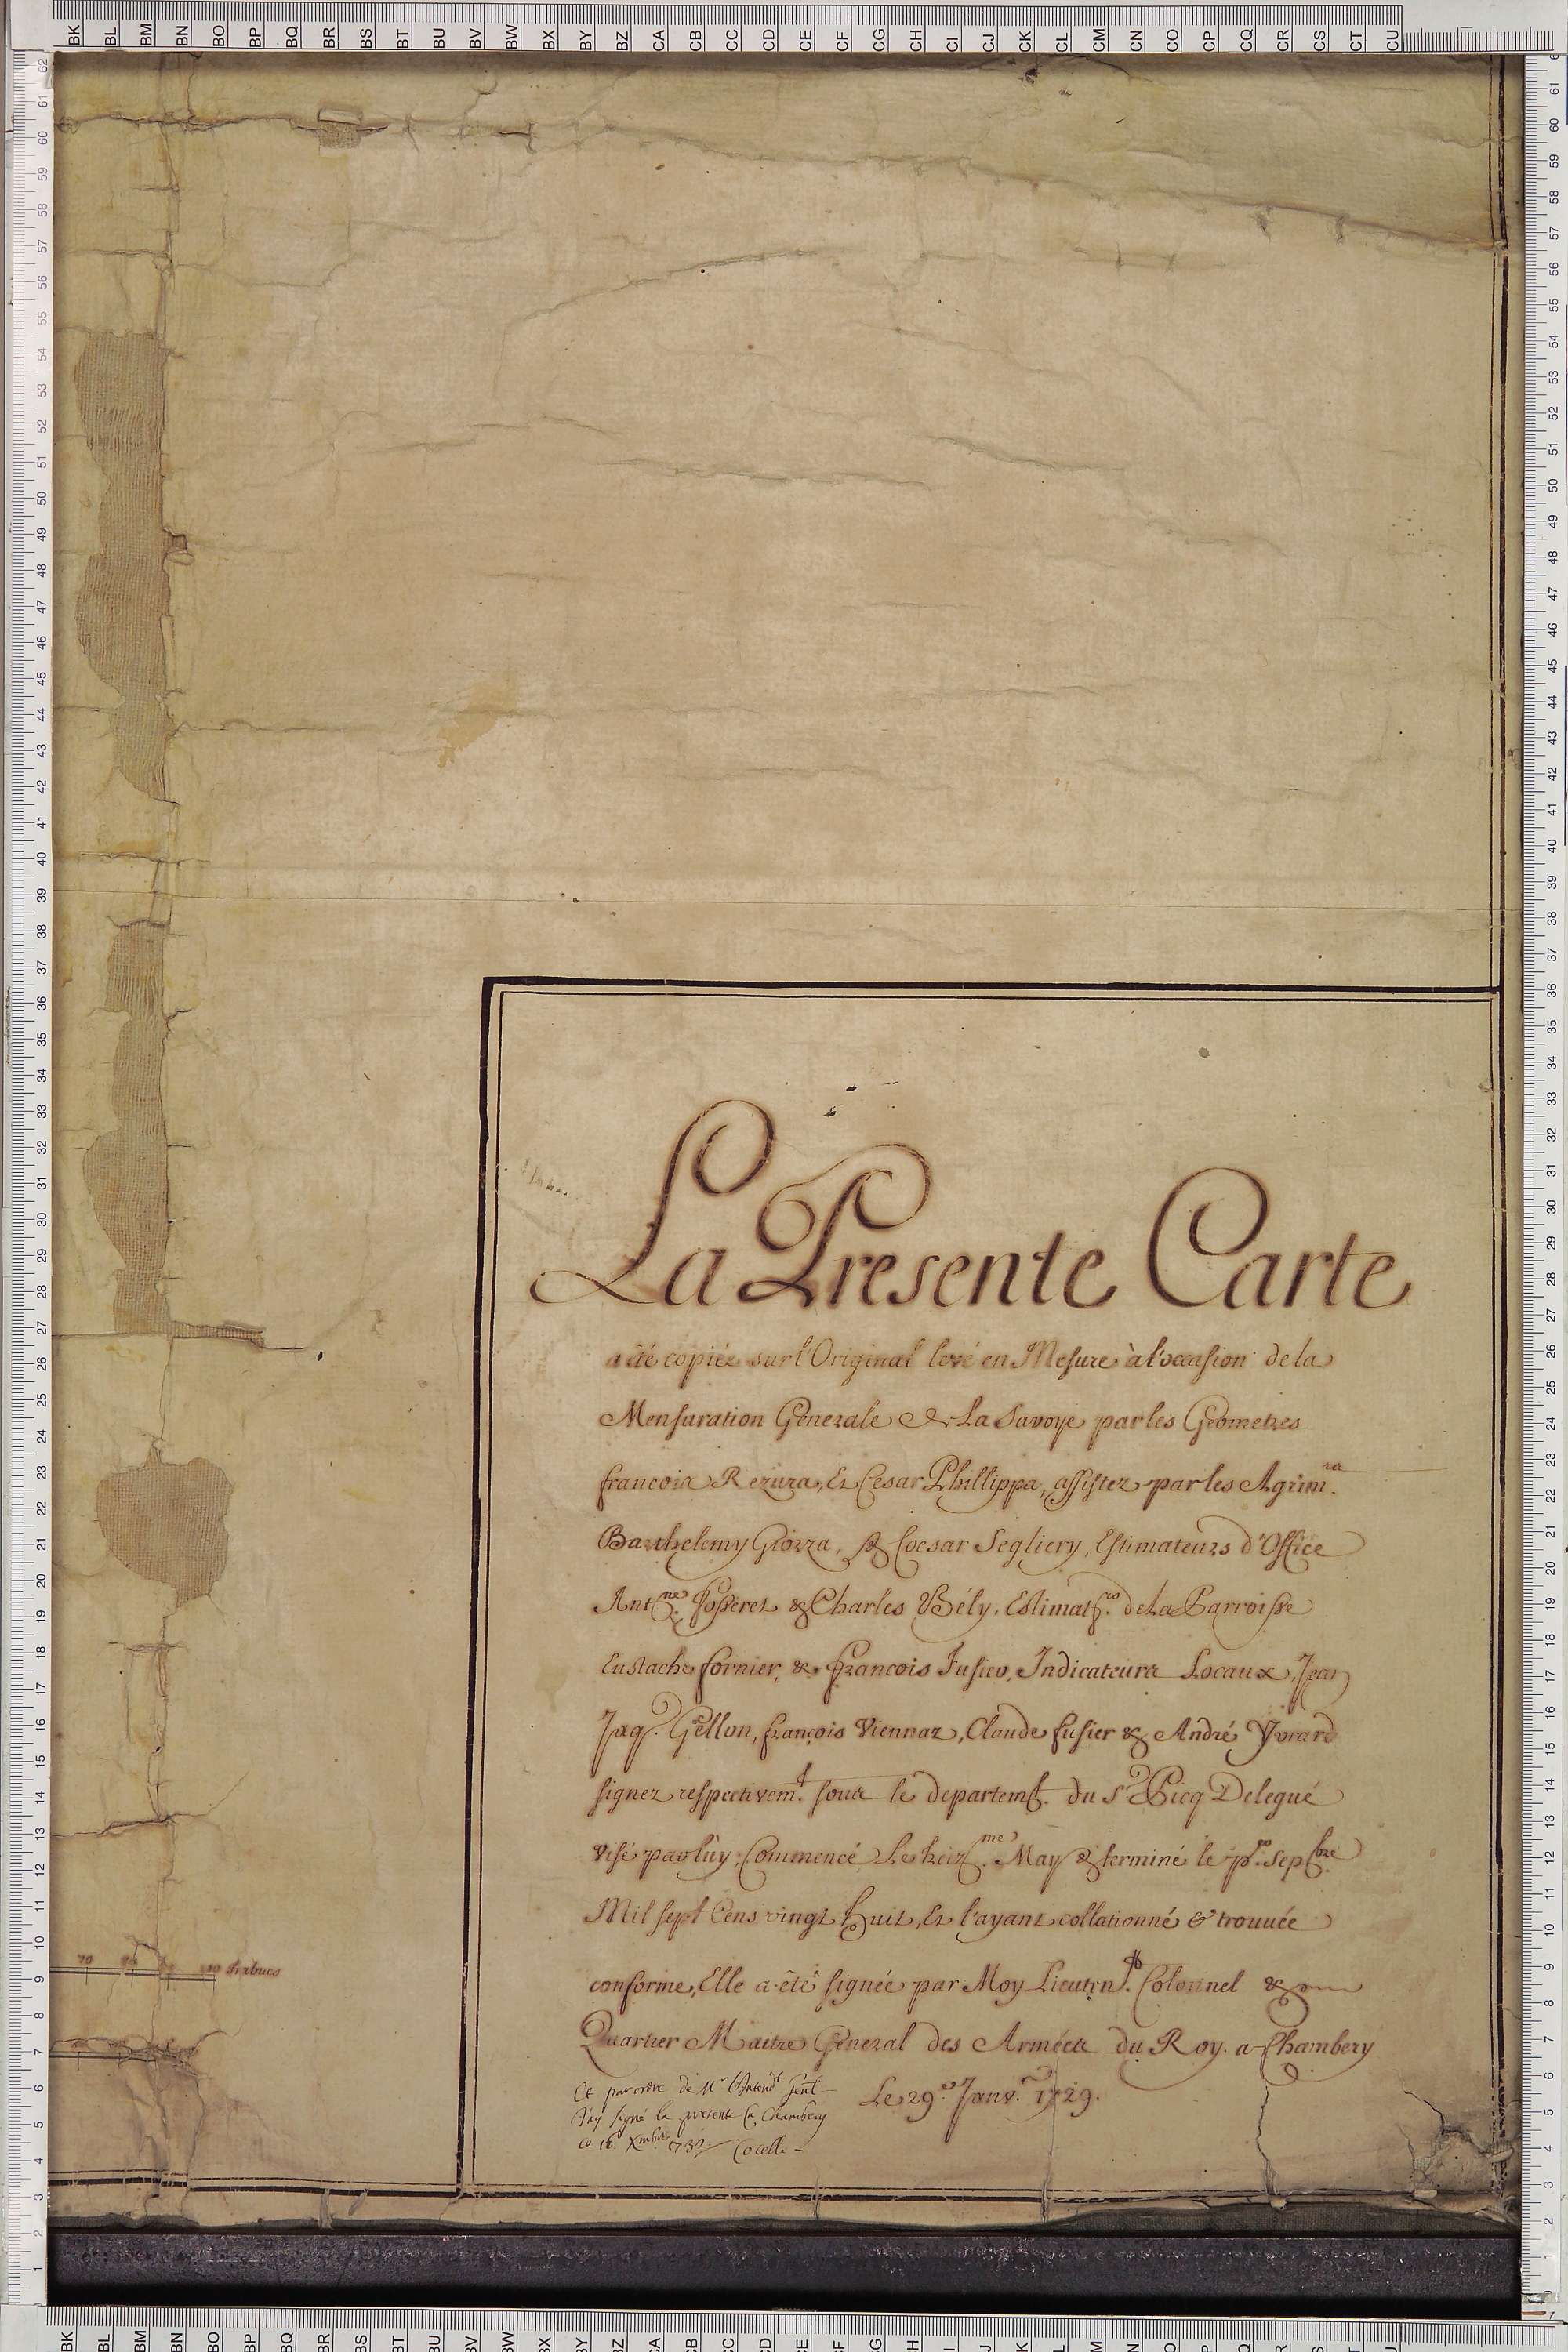 La Presente Carte
a été copiée sur l'Original levé en Mesure à l'occasion de la
Mensuration Generale de La Savoye par les Géometres
francois Rezuza, Et Cesar Phillippa, assistez par les Agrim.rs
Barthelemy Giozza, & Coesar Segliery, Estimateurs d'Office
Ant.ne Josseret & Charles Bély, Estimat.rs de La Parroisse
Eustache fornier, & francois fusier, Indicateurs Locaux, Jean
Jaq.s Gellon, françois Viennaz, Claude fusier & André Yvrard
signez respectivem.t sous le departem.t du S.r Picq Delegué
visé par lùy, Commencé Le treiz.me May & terminé le p.r Sep.bre
Mil sept Cens vingt huit, Et l'ayant collationné & trouvée
conforme, Elle a été signée par Moy Lieuten.t Colonnel &
Quartier Maitre General des Armées du Roy. a Chambery
Le 29.e Janv.r 1729.
Et par ordre de M.r l'Intend.t Genl
J'ay signé la presente a Chambery
ce 16. Xmbre 1732 Cocelle
70 80 90 100 trabucs